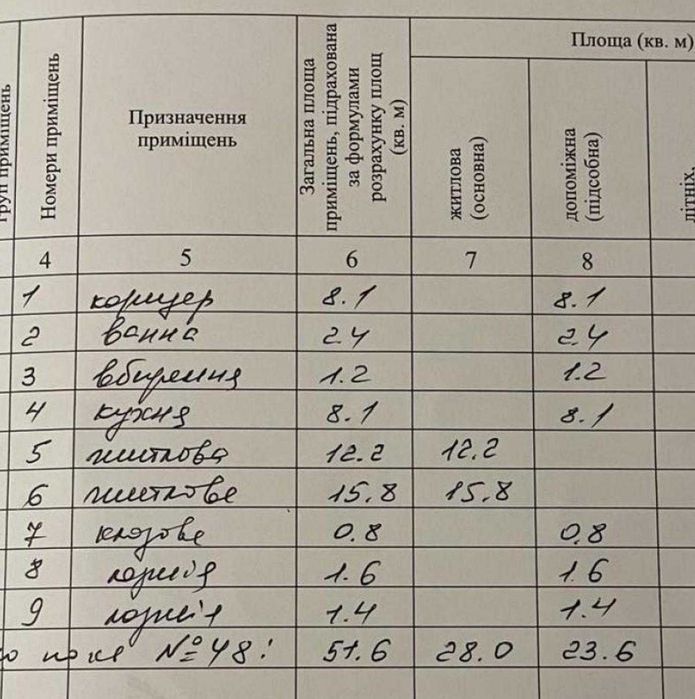 груп приміщень
Номери приміщень
Призначення
приміщень
Загальна площа
приміщень, підрахована
за формулами
розрахунку площ
(кв. м)
Площа (кв. м)
житлова
(основна)
допоміжна
(підсобна)
літніх,
4 5 6 7 8
1 коридер 8.1 8.1
2 ванна 2.4 2.4
3 вбиральня 1.2 1.2
4 кухня 8.1 8.1
5 житлова 12.2 12.2
6 житлове 15.8 15.8
7 кладове 0.8 0.8
8 лоджія 1.6 1.6
9 лоджія 1.4 1.4
№ 48: 51.6 28.0 23.6